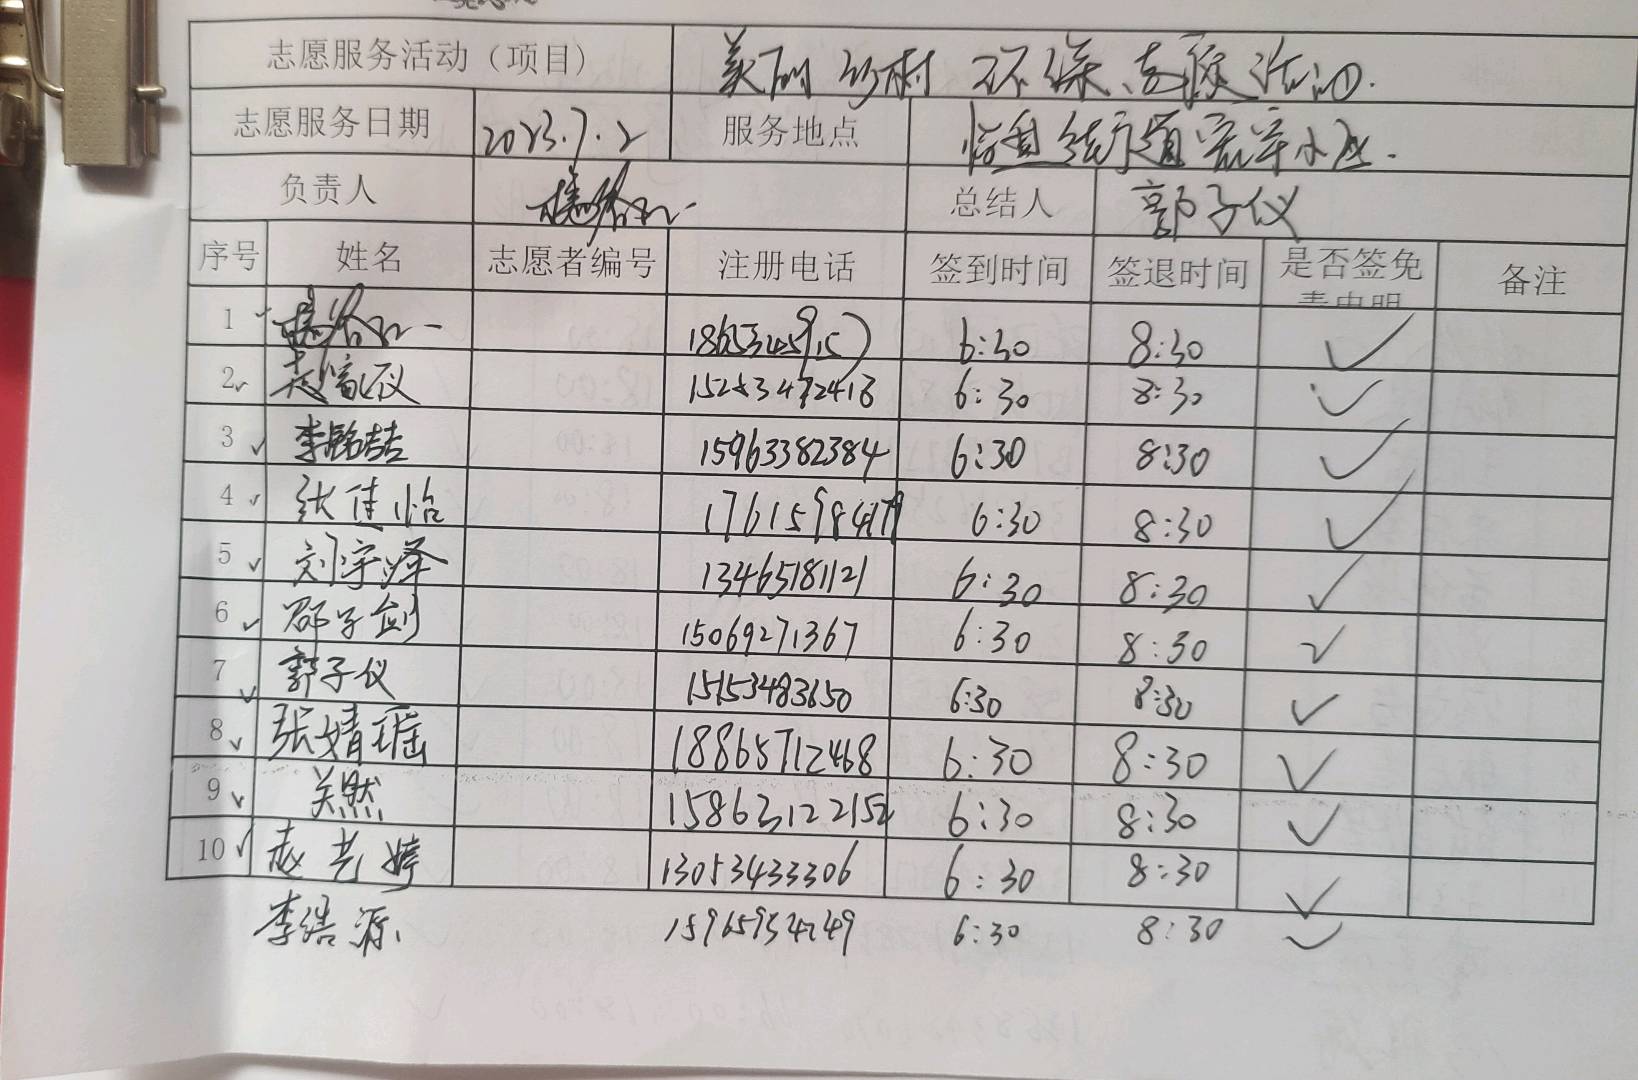 志愿服务活动（项目） 美丽乡村 环保志愿活动.
志愿服务日期 2023.7.2 服务地点 街道 小区.
负责人 总结人 郭子仪
序号 姓名 志愿者编号 注册电话 签到时间 签退时间 是否签免责申明 备注
1 6:30 8:30 ✓
2 ✓ 赵 仪 6:30 8:30 ✓
3 ✓ 李铭喆 15963382384 6:30 8:30 ✓
4 ✓ 张佳怡 6:30 8:30 ✓
5 ✓ 刘宇泽 13465181121 6:30 8:30 ✓
6 ✓ 邵子剑 15069271367 6:30 8:30 ✓
7 ✓ 郭子仪 15153483650 6:30 8:30 ✓
8 ✓ 张婧瑶 18865712468 6:30 8:30 ✓
9 ✓ 关然 15863122152 6:30 8:30 ✓
10 ✓ 赵艺婷 13053433306 6:30 8:30 ✓
李浩源 15965934249 6:30 8:30 ✓